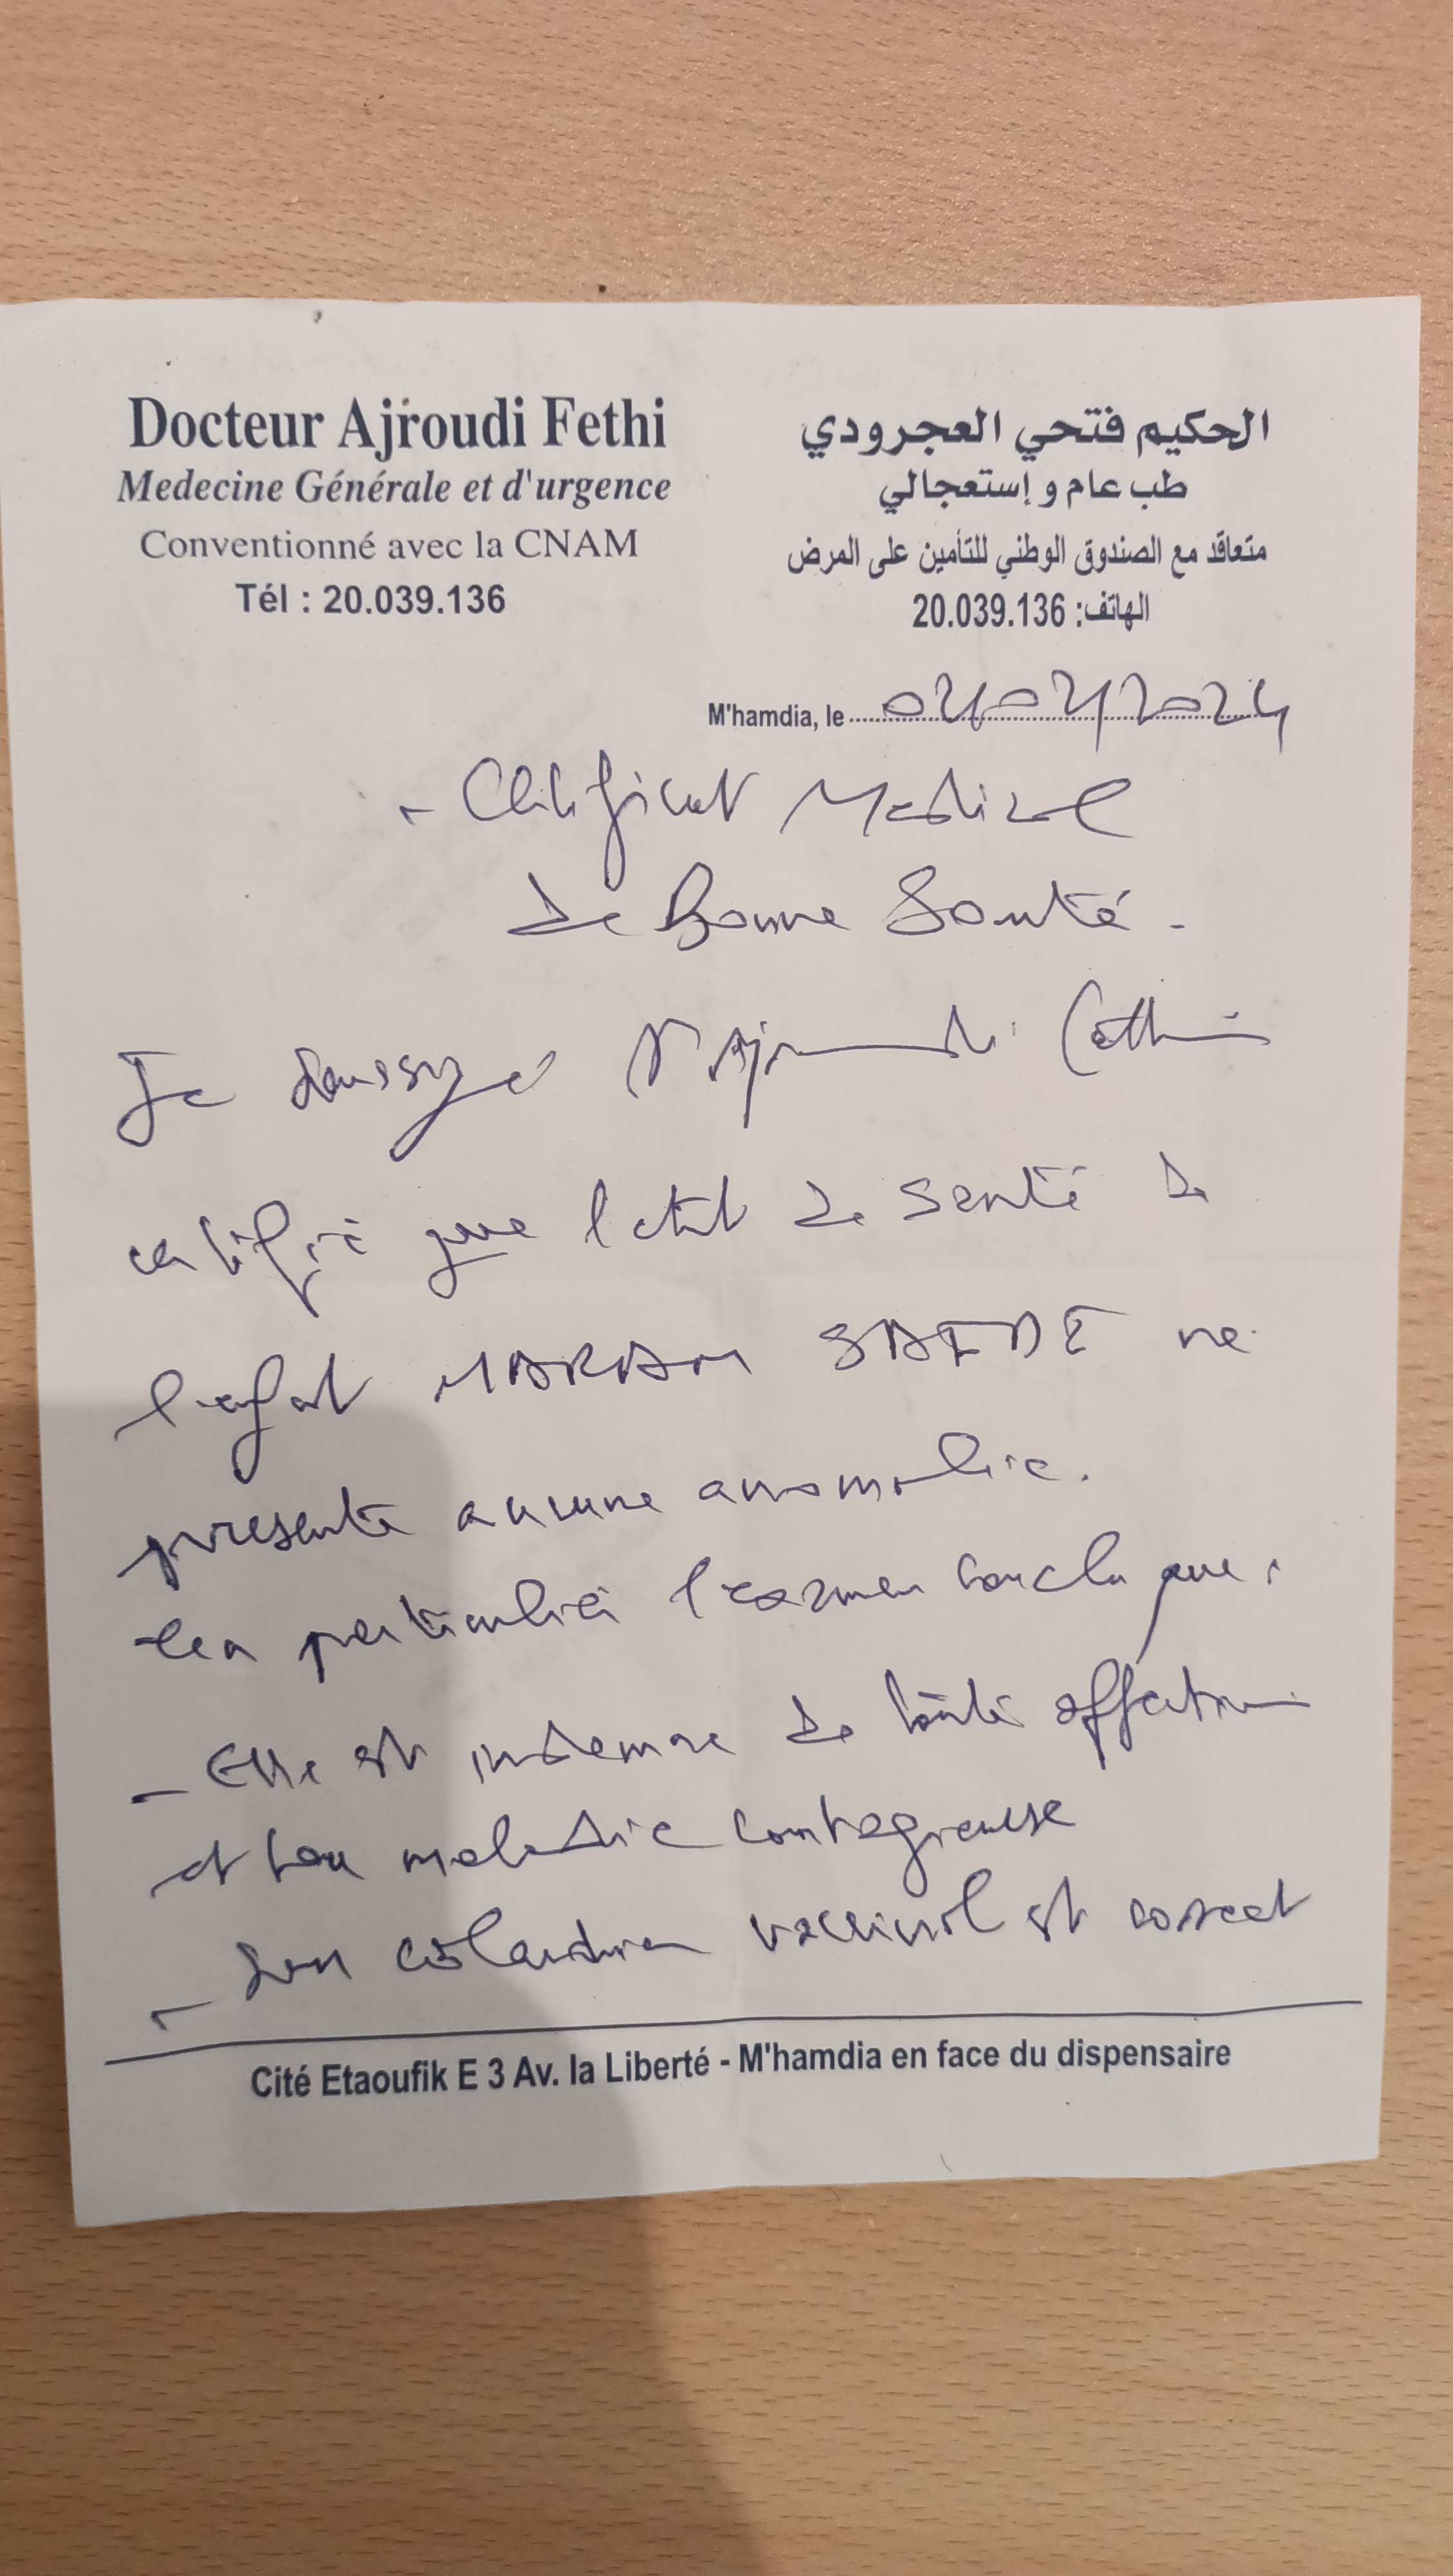 Docteur Ajroudi Fethi
Medecine Générale et d'urgence
Conventionné avec la CNAM
Tél : 20.039.136
الحكيم فتحي العجرودي
طب عام و إستعجالي
متعاقد مع الصندوق الوطني للتأمين على المرض
الهاتف: 20.039.136
M'hamdia, le
- Certificat Medical
de Bonne Santé -
Je soussigné Dr Ajroudi Fethi
certifie que l'etat de santé de
l'enfant MARIAM SAIDE ne
presente aucune anomalie.
En particulier l'examen conclu que :
- Elle est indemne de toute affection
et tou maladie contagieuse
- Son calendrier vaccinal est correct
Cité Etaoufik E 3 Av. la Liberté - M'hamdia en face du dispensaire